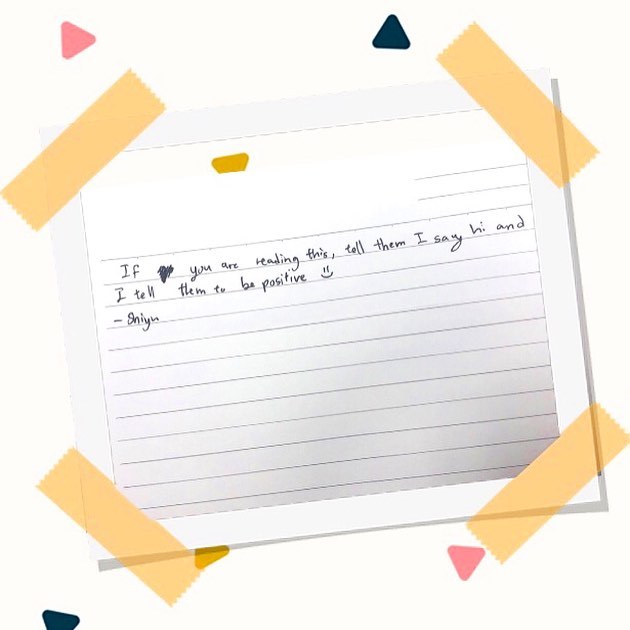 If you are reading this, tell them I say hi and
I tell them to be positive
- Shiyu